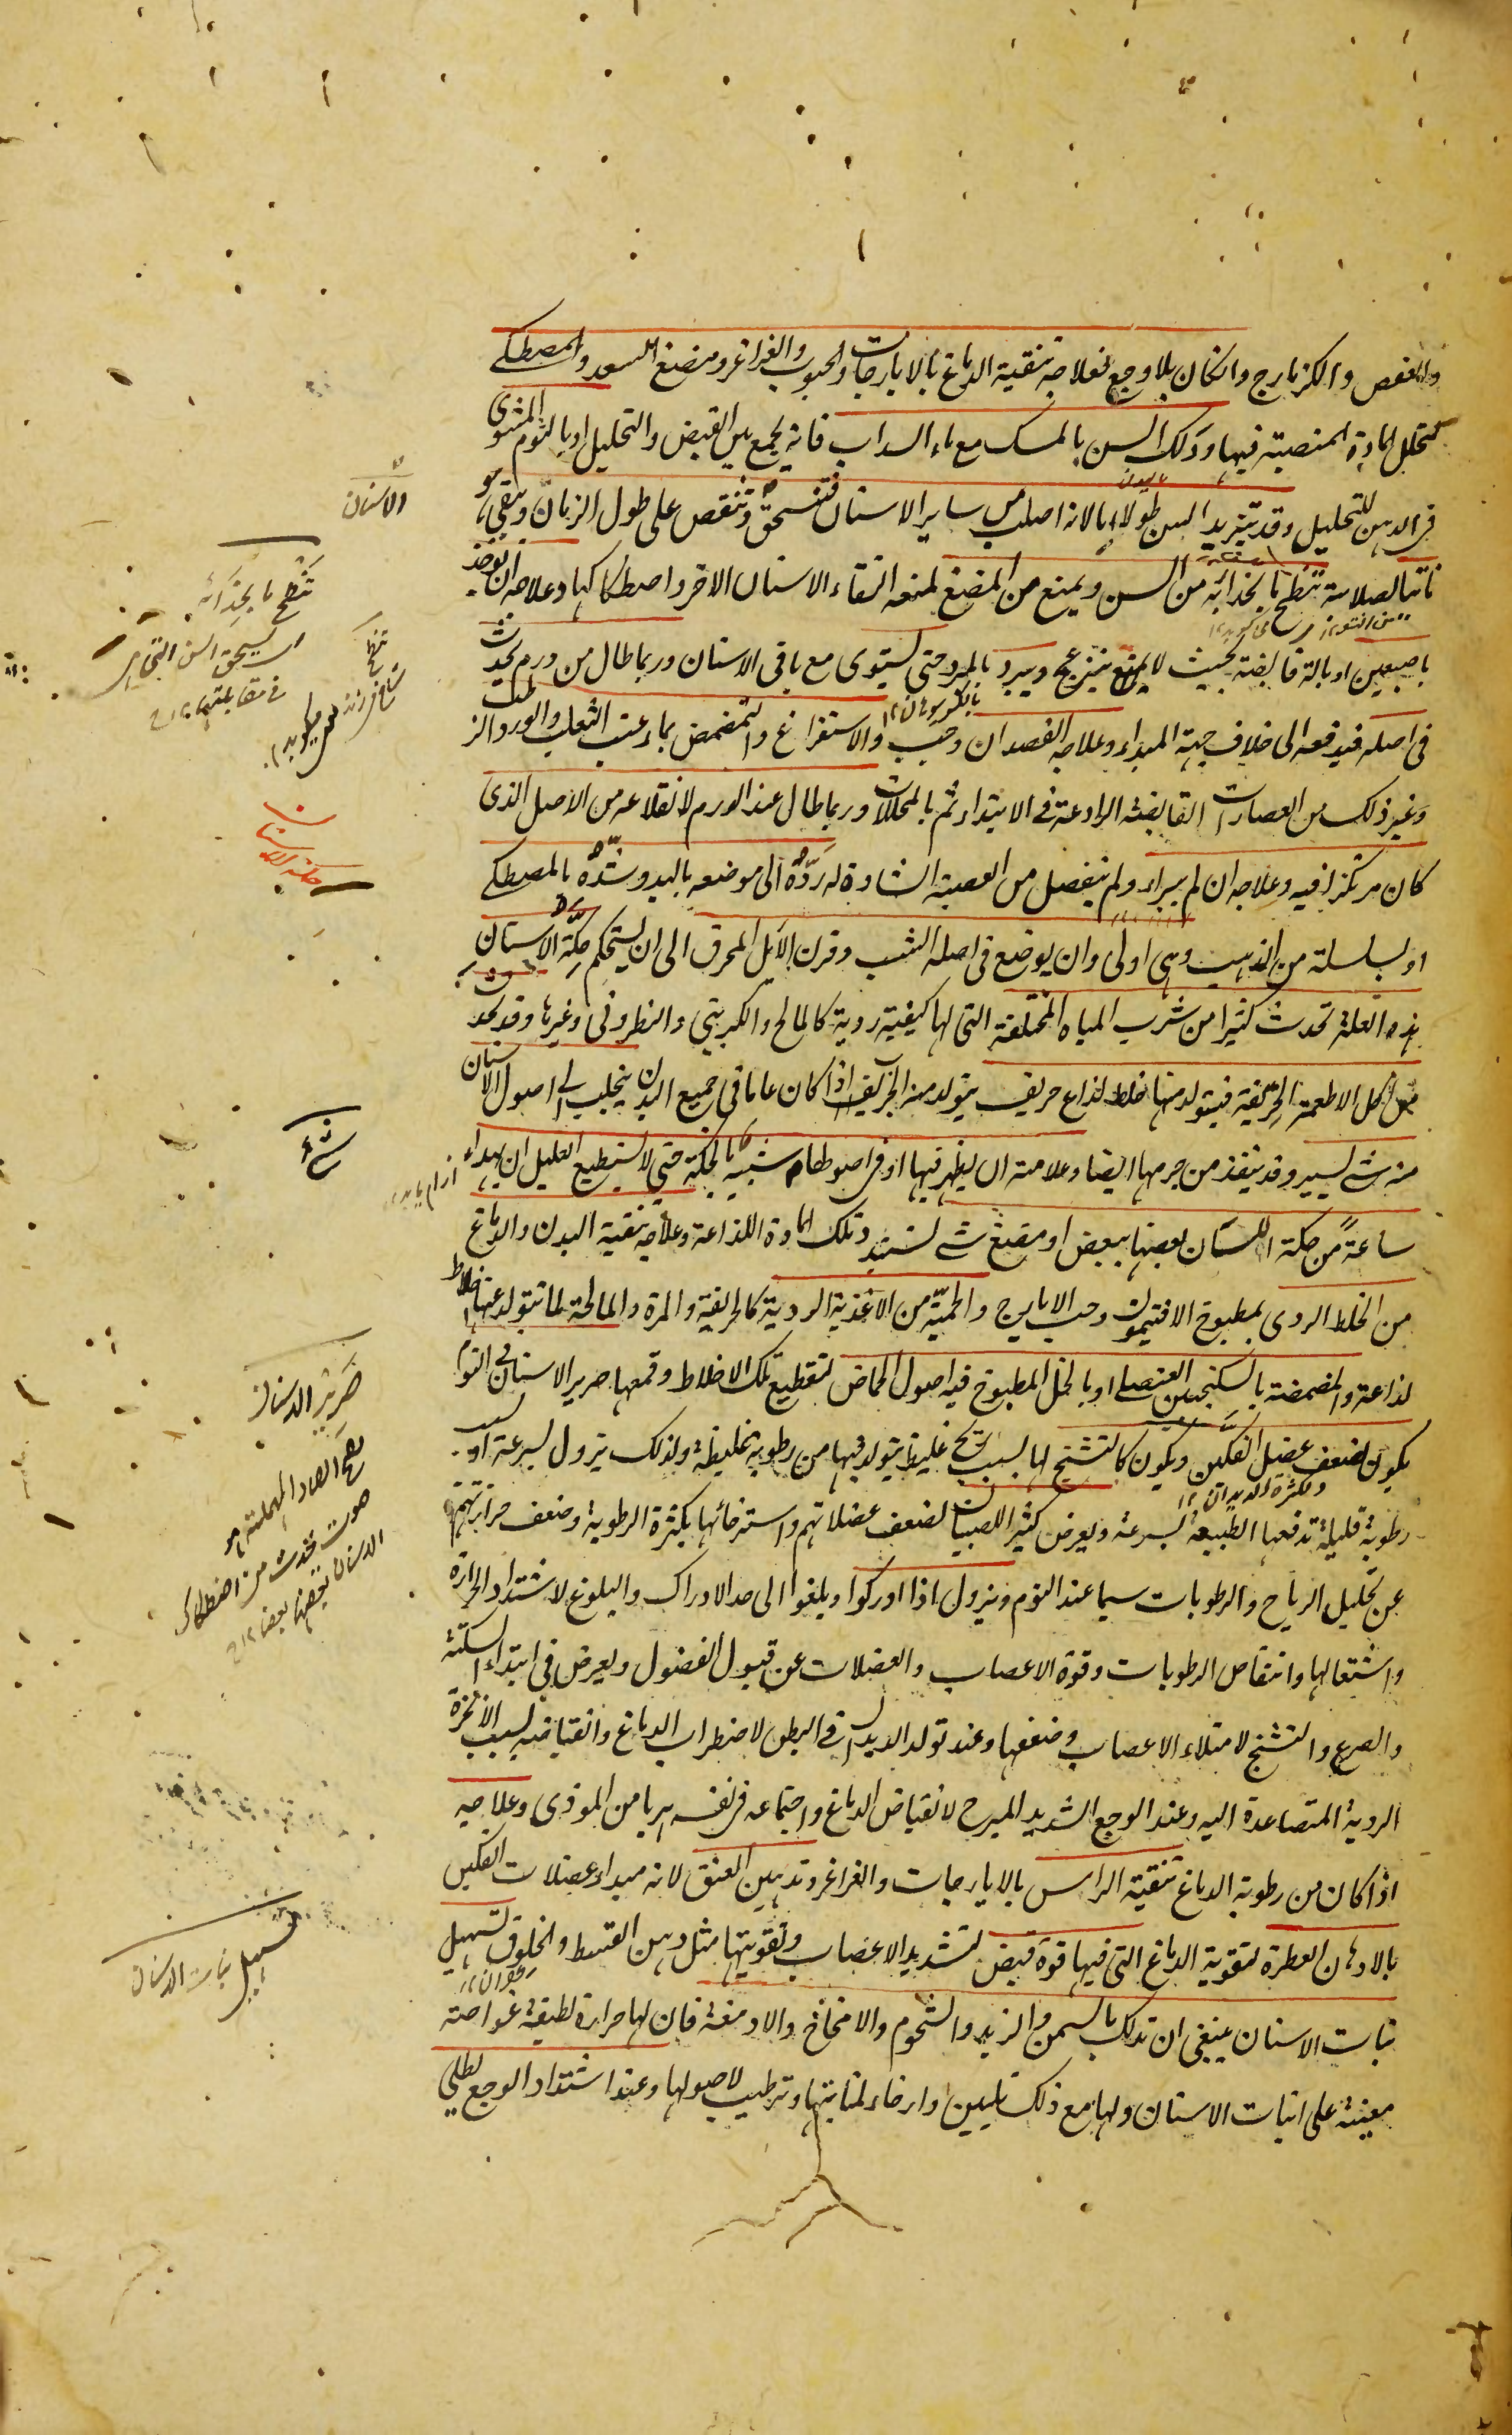 والعفص والكزمازج وان كان بلا وجع فعلاجه تنقية الدماغ بالايارجات والحبوب والغراغر ومضغ السعد والمصطكى
لتحلل المادة المنصبة فيها ودلك السن بالمسك مع ماء السداب فانه يجمع بين القبض والتحليل او بالثوم المشوى
فى الدهن للتحليل وقد يتزيد السن طولا اما لانه اصلب من ساير الاسنان فتنسحق وتنقص على طول الزمان ويبقى هو
ناتيا لصلابته تنطح ما بحذائه من السن ويمنع من المضغ لمنعه التقاء الاسنان الاخر واصطكاكها وعلاجه ان يوخذ
باصبعين او بالة قابضة بحيث لا يتزعزع ويبرد بالمبرد حتى يستوى مع باقى الاسنان وربما طال من ورم يحدث
فى اصله فيدفعه الى خلاف جهة المبداء وعلاجه الفصد ان وجب والاستفراغ والتمضمض بماء عنب الثعلب والورد
وغير ذلك من العصارات القابضة الرادعة فى الابتداء ثم بالمحللات وربما طال عند الورم لانقلاعه من الاصل الذى
كان مرتكزا فيه وعلاجه ان لم يبراء ولم ينفصل من العصبة الشادة له رده الى موضعه باليد وشده بالمصطكى
او بسلسلة من الذهب وهى اولى وان يوضع فى اصله الشب وقرن الايل المحرق الى ان يستحكم حكة الاسنان
هذه العلة تحدث كثيرا من شرب المياه المختلفة التى لها كيفية ردية كالمالح والكبريتى والنطرونى وغيرها وقد تحدث
من اكل الاطعمة الحريفة فيتولد منها خلط لذاع حريف اذا كان عاما فى جميع البدن ينجلب الى اصول الاسنان
منه شئ يسير وقد ينفذ من جرمها ايضا وعلامته ان يظهر فيها او فى اصولها شبيه بالحكة حتى لا يستطيع العليل ان يهداء
ساعة من حكة الاسنان بعضها ببعض او مضغ شئ وتلك المادة اللذاعة وعلاجه تنقية البدن والدماغ
من الخلط الردى بمطبوخ الافتيمون وحب الايارج والحمية من الاغذية الردية كالحريفة والمرة والمالحة لما تتولد عنها اخلاط
لذاعة والمضمضة بالسكنجبين العنصلى او بالخل المطبوخ فيه اصول الحماض لتقطيع تلك الاخلاط وقمعها صرير الاسنان فى النوم
يكون لضعف عضل الفكين ويكون كالتشنج لها بسبب ريح غليظ يتولد فيها من رطوبة غليظة ولذلك يزول بسرعة او بسبب
رطوبة قليلة تدفعها الطبيعة بسرعة ويعرض كثيرا للصبيان لضعف عضلاتهم واسترخائها بكثرة الرطوبة وضعف حرارتهم
عن تحليل الرياح والرطوبات سيما عند النوم ويزول اذا ادركوا وبلغوا الى حد الادراك والبلوغ لاشتداد الحرارة
واشتعالها وانتقاص الرطوبات وقوة الاعصاب والعضلات عن قبول الفضول ويعرض فى ابتداء السكتة
والصرع والتشنج لامتلاء الاعصاب وضعفها وعند تولد الديدان فى البطن لاضطراب الدماغ وانقباضه بسبب الابخرة
الردية المتصاعدة اليه وعند الوجع الشديد المبرح لانقباض الدماغ واجتماعه فى نفسه هربا من الموذى وعلاجه
اذا كان من رطوبة الدماغ تنقية الراس بالايارجات والغراغر وتدهين العنق لانه مبداء عضلات الفكين
بالادهان العطرة لتقوية الدماغ التى فيها قوة قبض لتشديد الاعصاب وتقويتها مثل دهن القسط والخلوق تسهيل
نبات الاسنان ينبغى ان تدلك بالسمن والزبد والشحوم والامخاخ والادمغة فان لها حرارة لطيفة غواصة
معينة على انبات الاسنان ولها مع ذلك تليين وارخاء لمنابتها وترطيب لاصولها وعند اشتداد الوجع يطلى
الاسنان
تنطح ما بحذائه
حكة الاسنان
شئ
صرير الاسنان
الصاد المهملة هو
صوت يحدث من اصطكاك
الاسنان بعضها بعضا
تسهيل نبات الاسنان